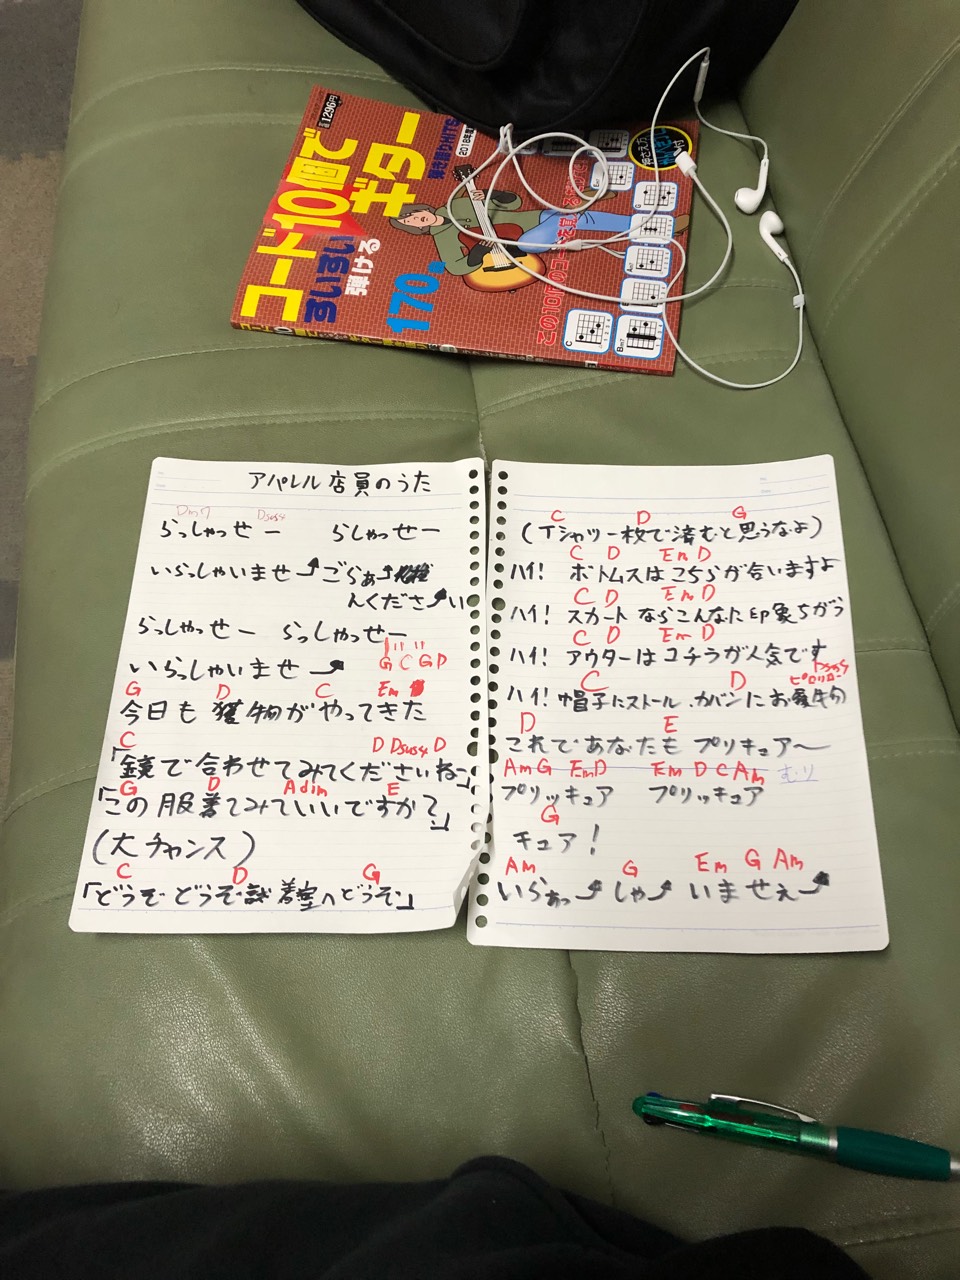 1296円
コード10個で
すいすい
弾ける
ギター
170曲
2018年
G
C
Bm7
アパレル店員のうた
Dm7 Dsus4
らっしゃっせー らっしゃっせー
いらっしゃいませ ごらぁ
んくださ い
らっしゃっせー らっしゃっせー
いらっしゃいませ
G C G D
G D C Em
今日も獲物がやってきた
C D Dsus4 D
「鏡で合わせてみてくださいね〜」
G D Adim E
「この服着てみていいですか?」
(大チャンス)
C D G
「どうぞどうぞ試着室へどうぞ」
C D G
(Tシャツ一枚で済むと思うなよ)
C D Em D
ハイ! ボトムスはこちらが合いますよ
C D Em D
ハイ! スカートならこんなに印象ちがう
C D Em D
ハイ! アウターはコチラが人気です
Dsus4
ピロリロン
C D
ハイ! 帽子にストール カバンにお履物
D E
これであなたも プリキュア〜
Am G Em D Em D C Am むり
プリッキュア プリッキュア
G
チュア!
Am G Em G Am
いらぁっ しゃ いませぇ